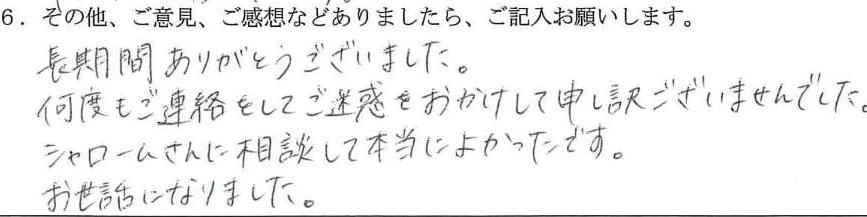 6．その他、ご意見、ご感想などありましたら、ご記入お願いします。
長期間ありがとうございました。
何度もご連絡をしてご迷惑をおかけして申し訳ございませんでした。
シャロームさんに相談して本当によかったです。
お世話になりました。